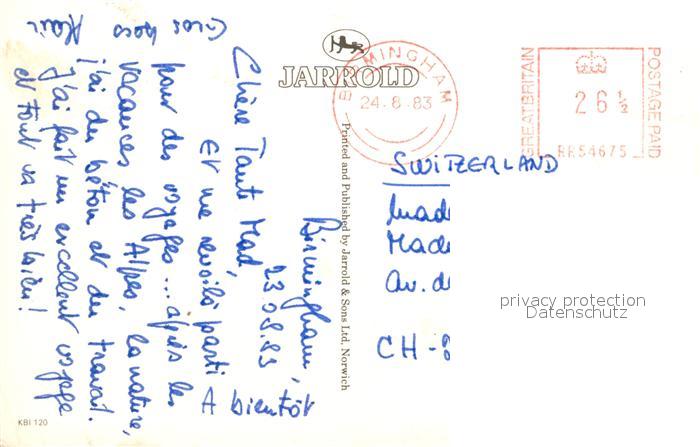 Birmingham,
23.08.83
Chère Tante Mad,
Et me revoilà parti
pour des voyages... après les
vacances les Alpes, la nature,
j'ai du béton et du travail.
J'ai fait un excellent voyage
et tout va très bien!
A bientôt
Gros becs
JARROLD
Printed and Published by Jarrold & Sons Ltd, Norwich
KBI 120
BIRMINGHAM
24.8.83
GREAT BRITAIN
26 ½
POSTAGE PAID
RR54675
SWITZERLAND
Mad
Made
Av. d
CH-8
privacy protection
Datenschutz